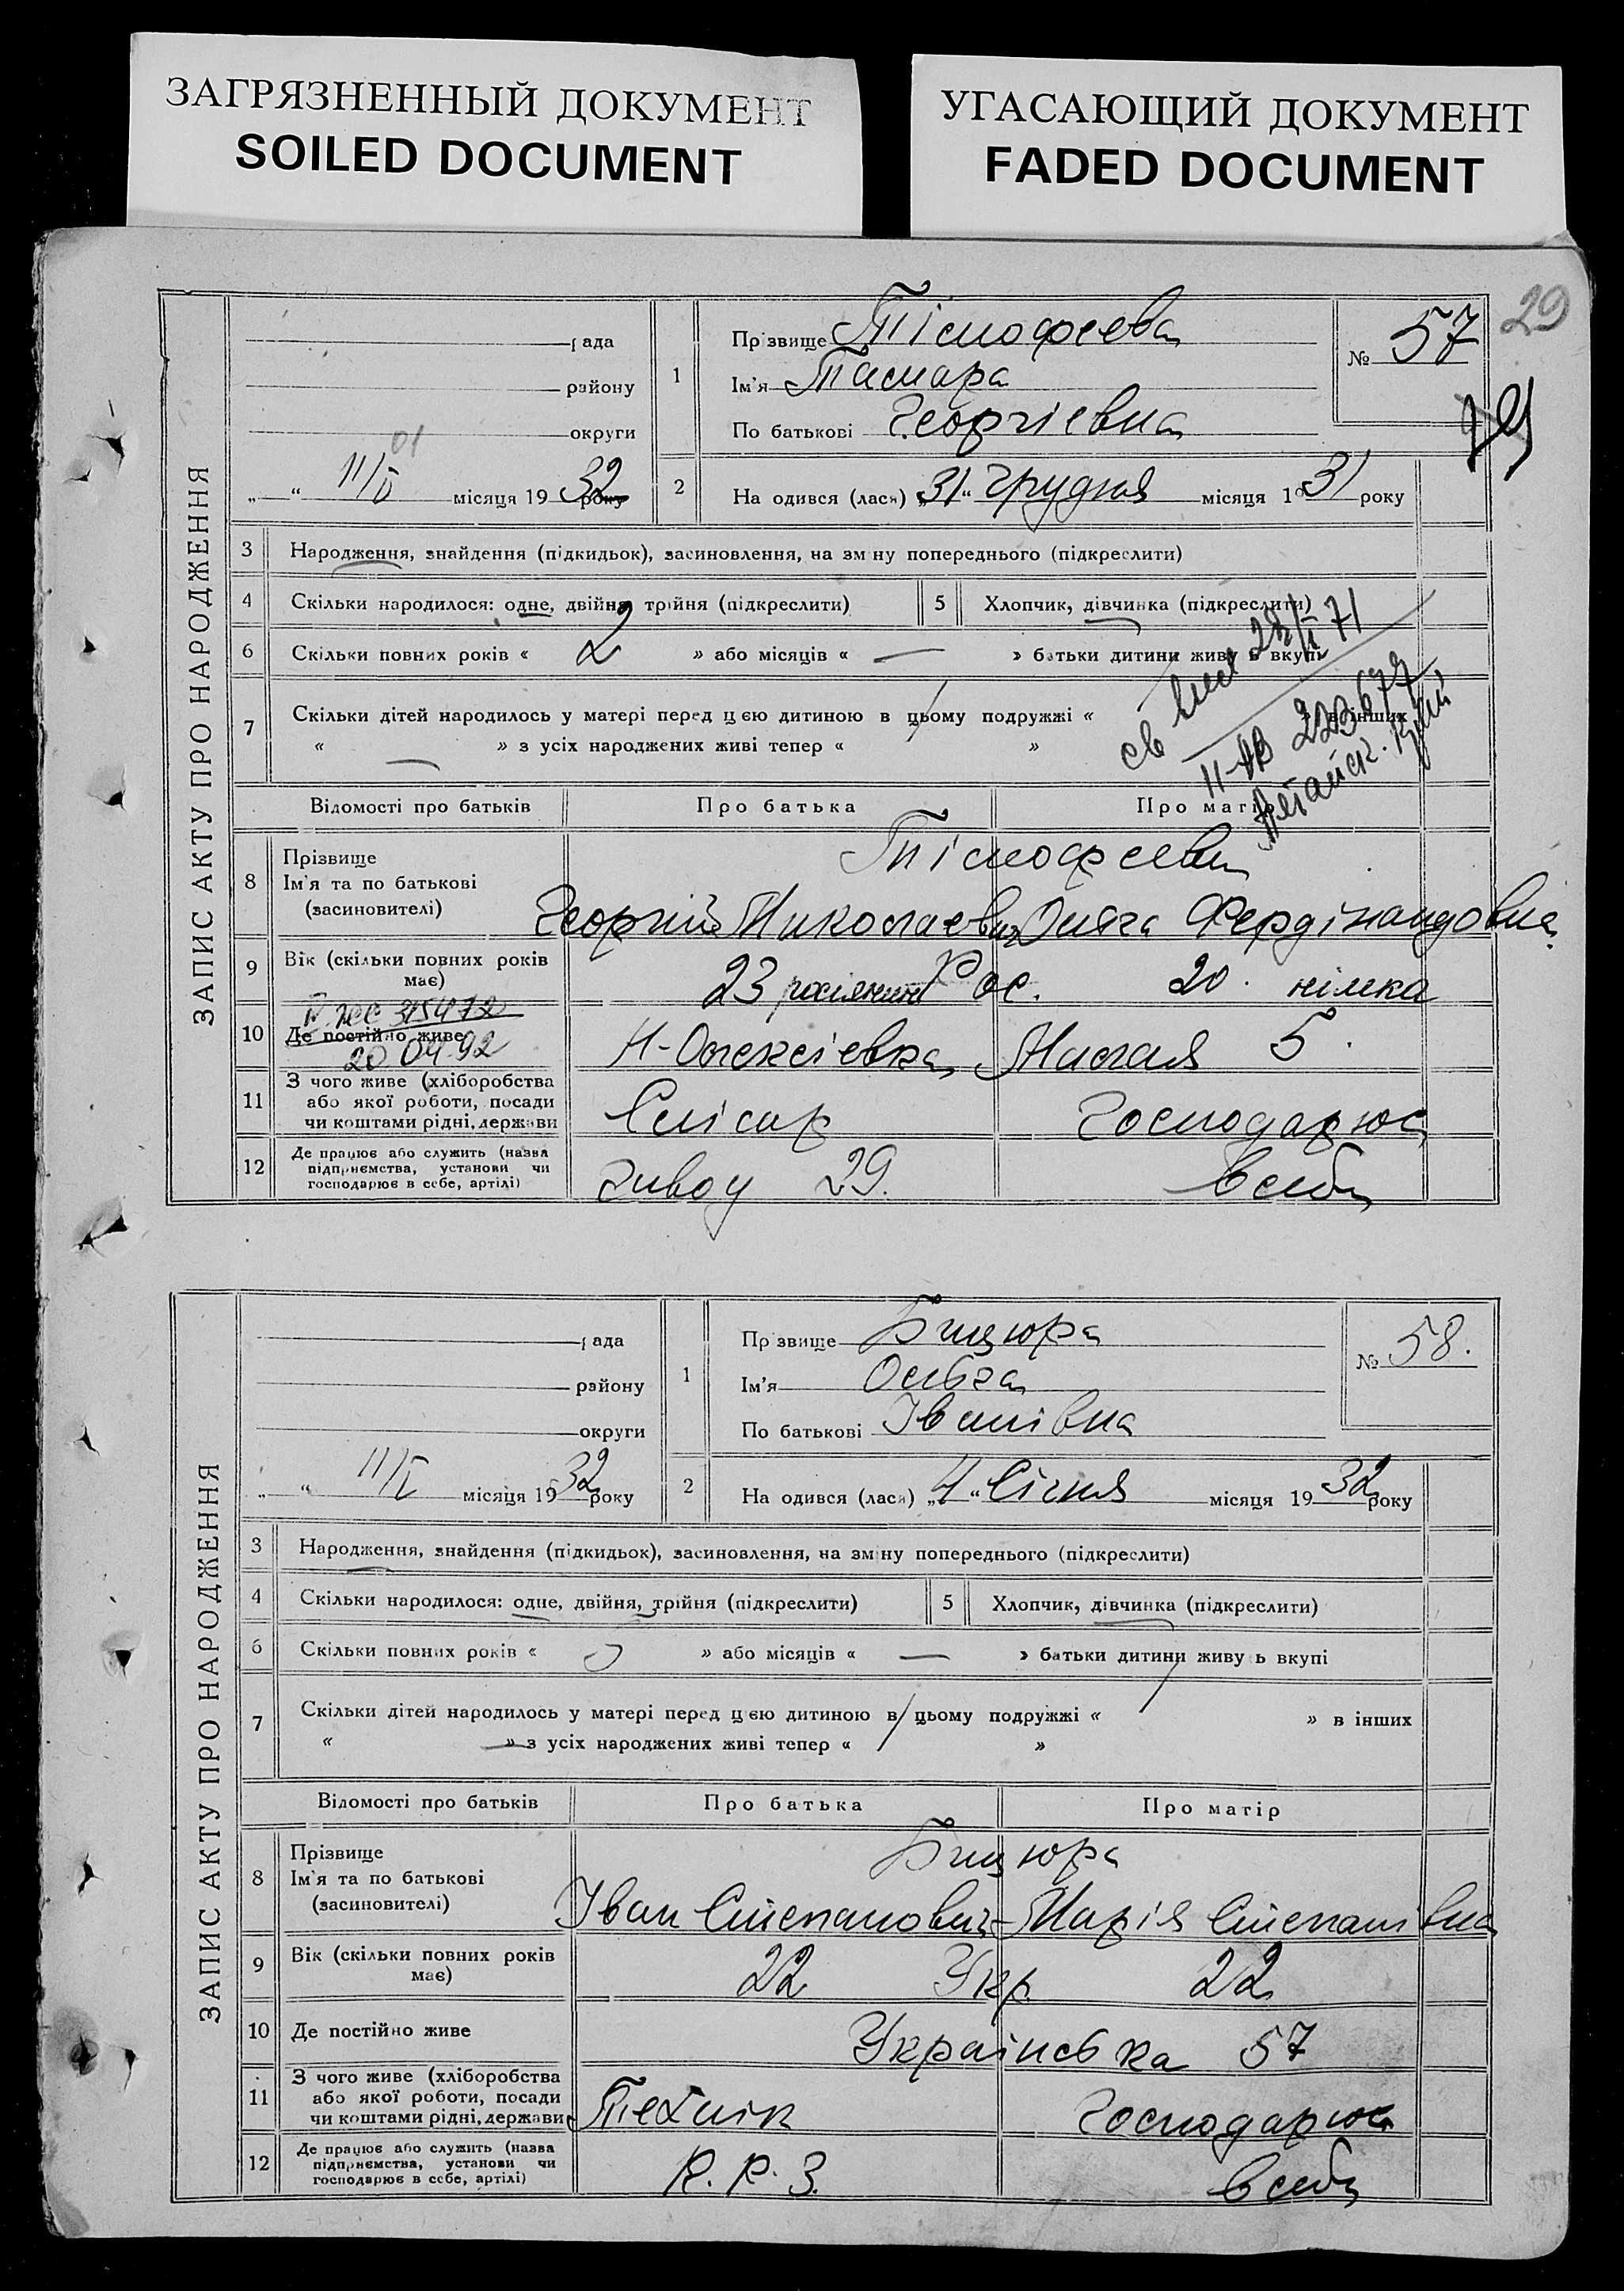 ЗАГРЯЗНЕННЫЙ ДОКУМЕНТ
SOILED DOCUMENT
УГАСАЮЩИЙ ДОКУМЕНТ
FADED DOCUMENT
29
ЗАПИС АКТУ ПРО НАРОДЖЕННЯ
рада
району
округи
01
„ “ 11/I місяця 19 32 року
1
Прізвище Тімофеева
Ім'я Тамара
По батькові Георгіевна
№ 57
2
На одився (лася) „31“ грудня місяця 19 31 року
3 Народження, знайдення (підкидьок), засиновлення, на зміну попереднього (підкреслити)
4 Скільки народилося: одне, двійня, трійня (підкреслити)
5 Хлопчик, дівчинка (підкреслити)
6 Скільки повних років « 2 » або місяців « — » батьки дитини живуть вкупі
7 Скільки дітей народилось у матері перед цією дитиною в цьому подружжі « » в інших
« — » з усіх народжених живі тепер « »
св
71
II-АВ
Алтайск. край
Відомості про батьків
Про батька
Про матір
8 Прізвище
Ім'я та по батькові
(засиновителі)
Тімофееви
Георгій Николаевич Ольга Фердінандовна
9 Вік (скільки повних років має)
23 росіянин Рос. 20. німка
315472
20.04.92
10 Де постійно живе
Н-Олексіевка, Малая 5.
11 З чого живе (хліборобства
або якої роботи, посади
чи коштами рідні, держави
Слісар
Господарює
12 Де працює або служить (назва
підприємства, установи чи
господарює в себе, артілі)
Завод 29.
в себе
ЗАПИС АКТУ ПРО НАРОДЖЕННЯ
рада
району
округи
„ “ 11/I місяця 19 32 року
1
Прізвище Бицюра
Ім'я Ольга
По батькові Іванівна
№ 58.
2
На одився (лася) „4“ Січня місяця 19 32 року
3 Народження, знайдення (підкидьок), засиновлення, на зміну попереднього (підкреслити)
4 Скільки народилося: одне, двійня, трійня (підкреслити)
5 Хлопчик, дівчинка (підкреслити)
6 Скільки повних років « » або місяців « — » батьки дитини живуть вкупі
7 Скільки дітей народилось у матері перед цією дитиною в цьому подружжі « » в інших
« — » з усіх народжених живі тепер « »
Відомості про батьків
Про батька
Про матір
8 Прізвище
Ім'я та по батькові
(засиновителі)
Бицюра
Іван Степанович - Марія Степанівна
9 Вік (скільки повних років має)
22 Укр 22
10 Де постійно живе
Українська 57
11 З чого живе (хліборобства
або якої роботи, посади
чи коштами рідні, держави
Технік
Господарює
12 Де працює або служить (назва
підприємства, установи чи
господарює в себе, артілі)
К. Р. З.
в себе